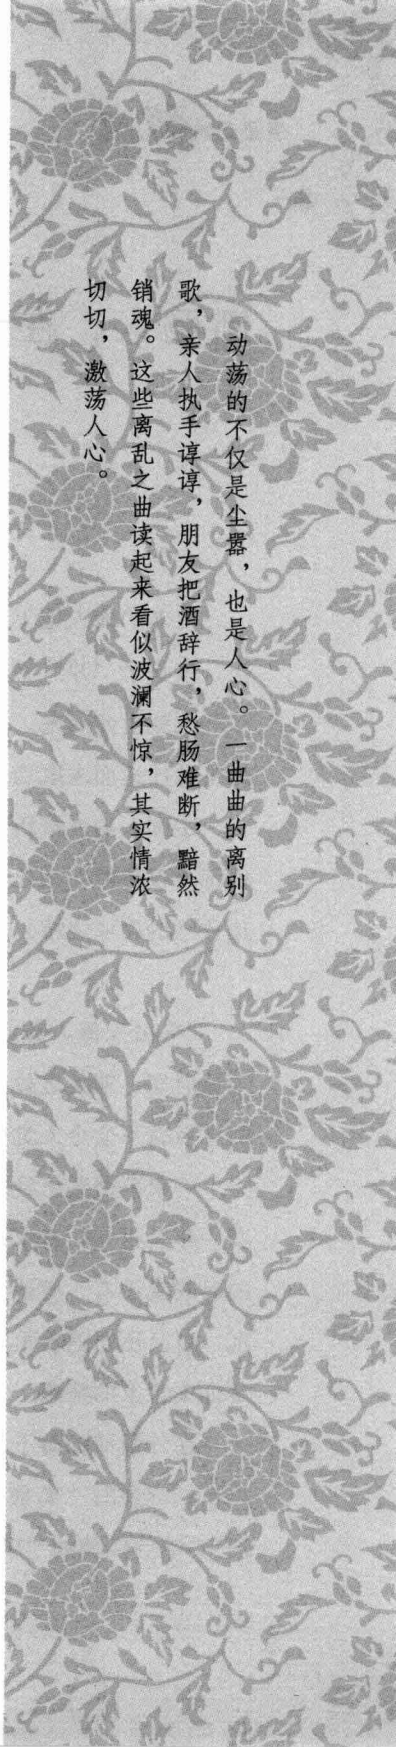 动荡的不仅是尘嚣，也是人心。一曲曲的离别
歌，亲人执手谆谆，朋友把酒辞行，愁肠难断，黯然
销魂。这些离乱之曲读起来看似波澜不惊，其实情浓
切切，激荡人心。